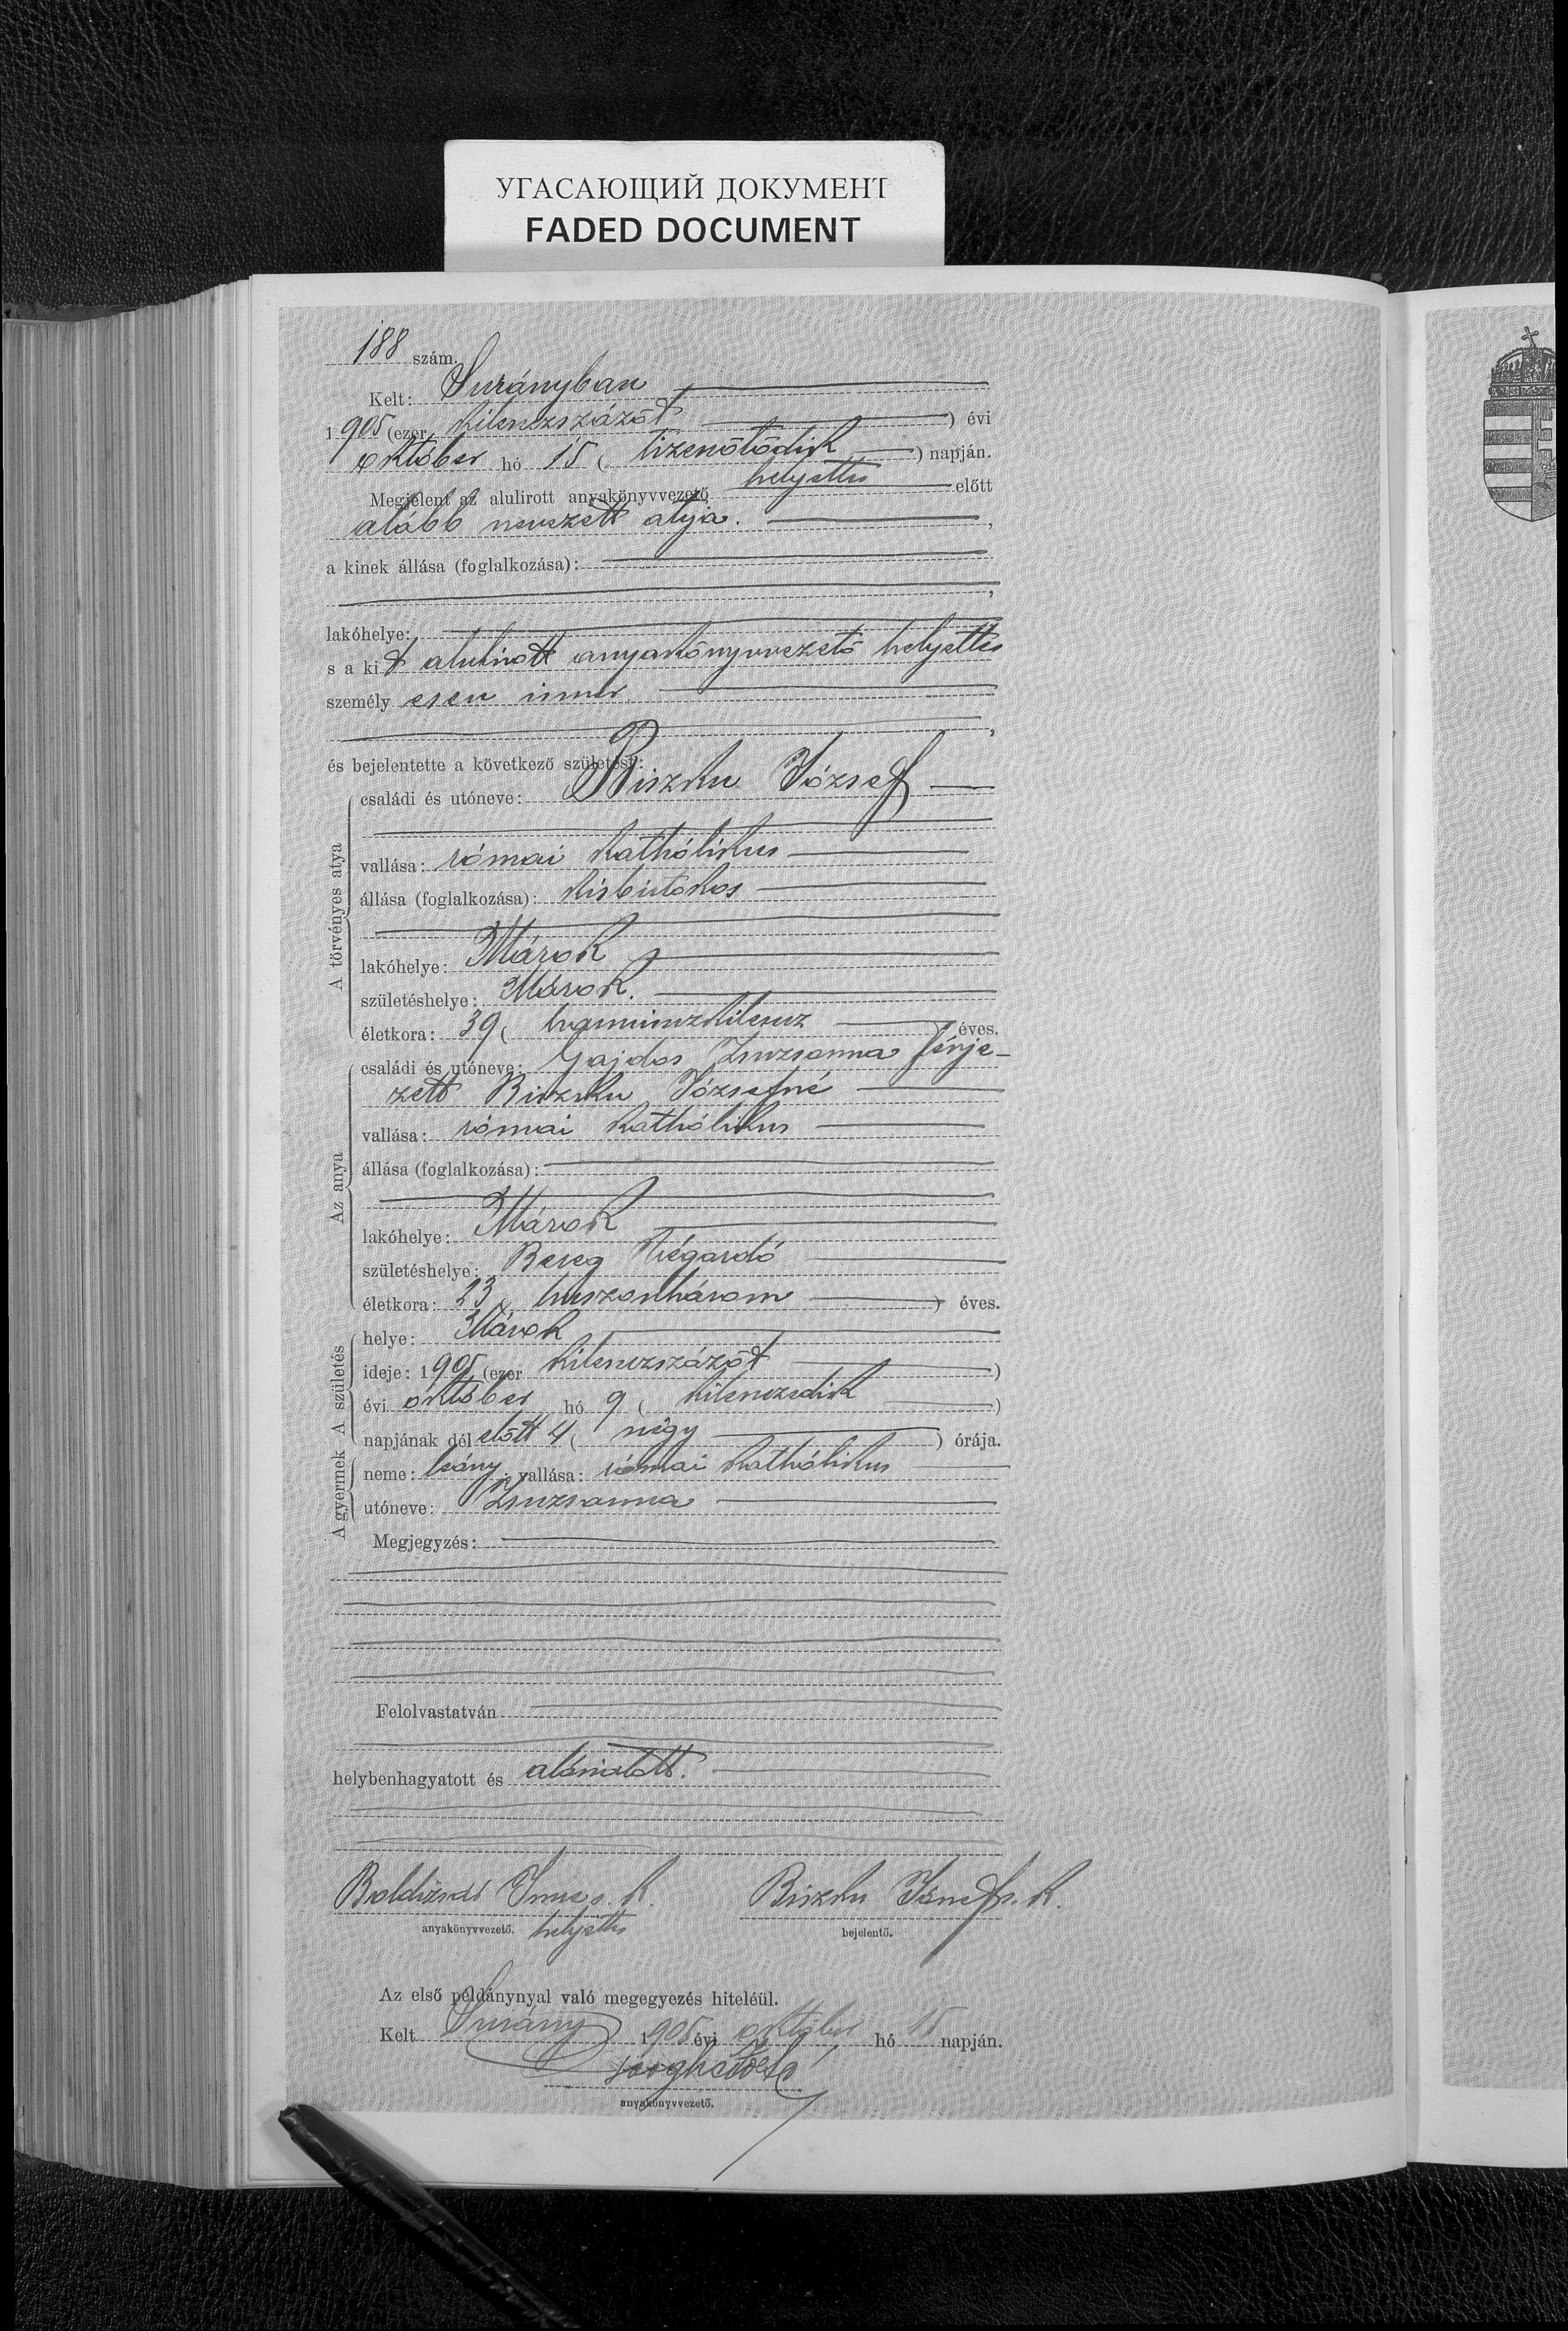 УГАСАЮЩИЙ ДОКУМЕНТ
FADED DOCUMENT
188 szám.
Kelt: Surányban
1905 (ezer kilenczszázöt ) évi
október hó 15 ( tizenötödik ) napján.
Megjelent az alulirott anyakönyvvezető helyettes előtt
alább nevezett atyja. ,
a kinek állása (foglalkozása):
,
lakóhelye:
s a kit alulírott anyakönyvvezető helyettes
személy esen ismer
,
és bejelentette a következő születést:
A törvényes atya
családi és utóneve: Biszku József
vallása: római katholikus
állása (foglalkozása): kisbirtokos
lakóhelye: Márok
születéshelye: Márok.
életkora: 39 ( harminczkilencz ) éves.
Az anya
családi és utóneve: Gajdos Zsuzsanna férje-
zett Biszku Józsefné
vallása: római katholikus
állása (foglalkozása):
lakóhelye: Márok
születéshelye: Bereg Végardó
életkora: 23 ( huszonhárom ) éves.
A születés
helye: Márok
ideje: 1905 (ezer kilenczszázöt )
évi október hó 9 ( kilenczedik )
napjának dél előtt 4 ( négy ) órája.
A gyermek
neme: leány vallása: római katholikus
utóneve: Zsuzsanna
Megjegyzés:
Felolvastatván
helybenhagyatott és aláiratott.
Boldizsár Imre s. k. Biszku József s. k.
anyakönyvvezető. helyettes bejelentő.
Az első példánynyal való megegyezés hiteléül.
Kelt Surány 1905 évi október hó 15 napján.
anyakönyvvezető.